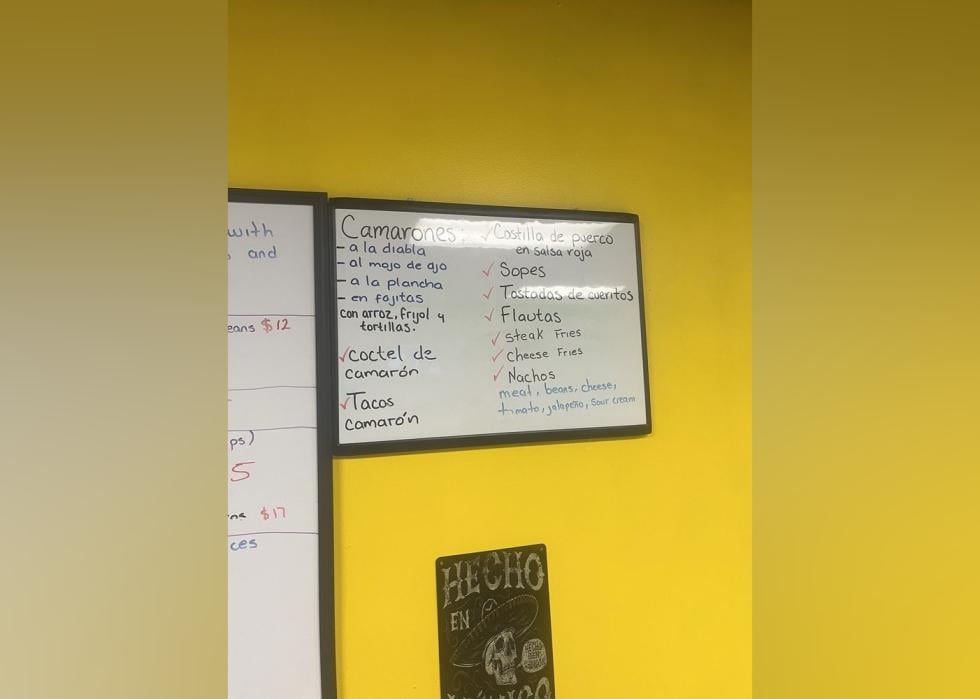 with
and
eans $12
ps)
5
ns $17
ces
Camarones:
- a la diabla
- al mojo de ajo
- a la plancha
- en fajitas
con arroz, frijol y
tortillas.
✓coctel de
camarón
✓Tacos
camarón
✓Costilla de puerco
en salsa roja
✓Sopes
✓Tostadas de cueritos
✓Flautas
✓steak Fries
✓Cheese Fries
✓Nachos
meat, beans, cheese,
tomato, jalapeño, sour cream
HECHO
EN